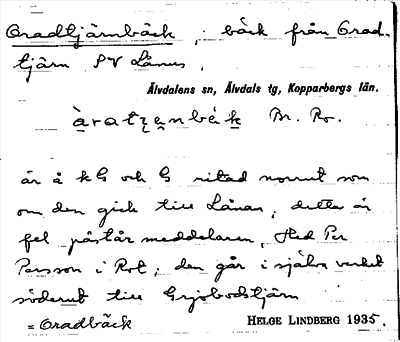 Oradtjärnbäck, bäck från Orad-
tjärn SV Lånus,
Älvdalens sn, Älvdals tg, Kopparbergs län.
àratzanbèk Br. Ro.
är å kG och G ritad norrut som
om den gick till Lånan, detta är
fel påstår meddelaren, Hed Per
Persson i Rot; den går i själva verket
söderut till Grjobodstjärn
= Oradbäck HELGE LINDBERG 1935.